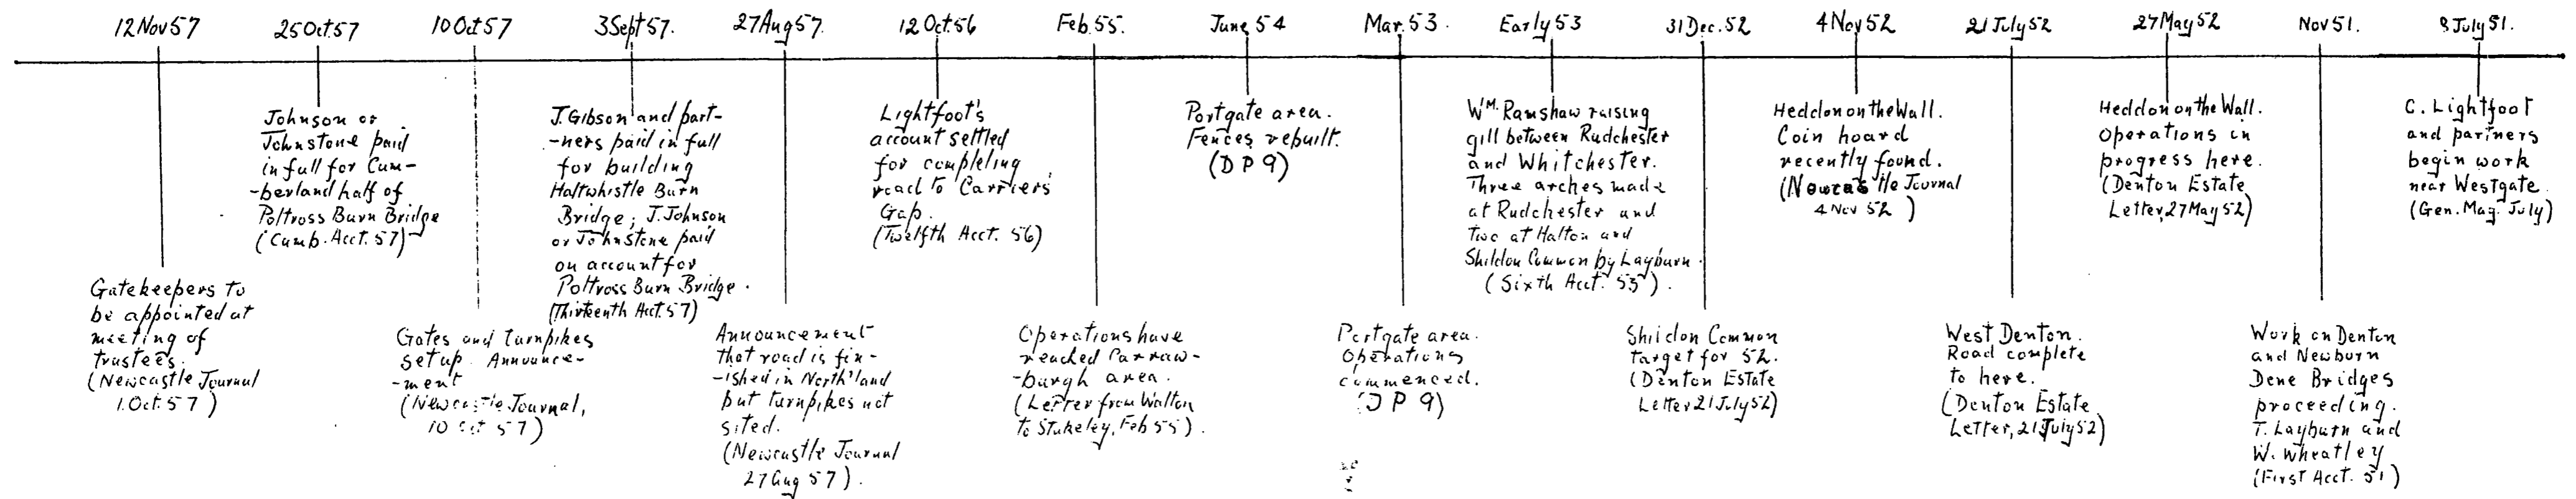 12 Nov 57
25 Oct. 57
10 Oct 57
3 Sept 57.
27 Aug 57.
12 Oct. 56
Feb. 55.
June 54
Mar. 53.
Early 53
31 Dec. 52
4 Nov 52
21 July 52
27 May 52
Nov 51.
8 July 51.
Gatekeepers to
be appointed at
meeting of
trustees.
(Newcastle Journal
1. Oct. 57)
Johnson or
Johnstone paid
in full for Cum-
-berland half of
Poltross Burn Bridge
(Cumb. Acct. 57)
Gates and turnpikes
set up. Announce-
-ment
(Newcastle Journal,
10 Oct 57)
J. Gibson and part-
-ners paid in full
for building
Haltwhistle Burn
Bridge; J. Johnson
or Johnstone paid
on account for
Poltross Burn Bridge.
(Thirteenth Acct. 57)
Announcement
that road is fin-
-ished in North'land
but turnpikes not
sited.
(Newcastle Journal
27 Aug 57).
Lightfoot's
account settled
for completing
road to Carriers'
Gap.
(Twelfth Acct. 56)
Operations have
reached Carraw-
-burgh area.
(Letter from Walton
to Stukeley, Feb 55).
Portgate area.
Fences rebuilt.
(D P 9)
Portgate area.
Operations
commenced.
(D P 9)
Wm. Ramshaw raising
gill between Rudchester
and Whitchester.
Three arches made
at Rudchester and
two at Halton and
Shildon Common by Layburn.
(Sixth Acct. 53).
Shildon Common
target for 52.
(Denton Estate
Letter 21 July 52)
Heddon on the Wall.
Coin hoard
recently found.
(Newcastle Journal
4 Nov 52)
West Denton.
Road complete
to here.
(Denton Estate
Letter, 21 July 52)
Heddon on the Wall.
Operations in
progress here.
(Denton Estate
Letter, 27 May 52)
Work on Denton
and Newburn
Dene Bridges
proceeding.
T. Layburn and
W. Wheatley
(First Acct. 51)
C. Lightfoot
and partners
begin work
near Westgate.
(Gen. Mag. July)